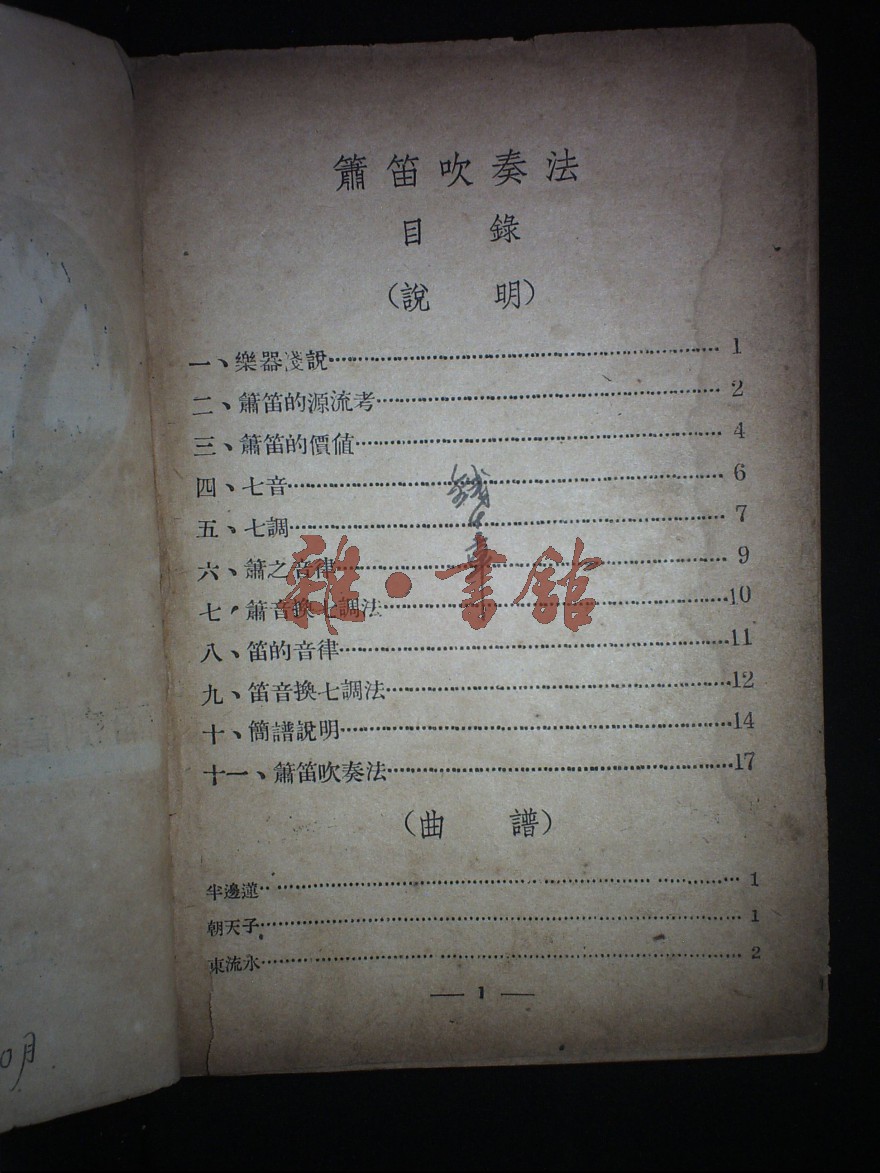 簫笛吹奏法
目 錄
（說 明）
一、樂器淺說…………1
二、簫笛的源流考…………2
三、簫笛的價值…………4
四、七音…………6
五、七調…………7
六、簫之音律…………9
七、簫音換七調法…………10
八、笛的音律…………11
九、笛音換七調法…………12
十、簡譜說明…………14
十一、簫笛吹奏法…………17
雜·書館
（曲 譜）
半邊蓮…………1
朝天子…………1
東流水…………2
— 1 —
0月